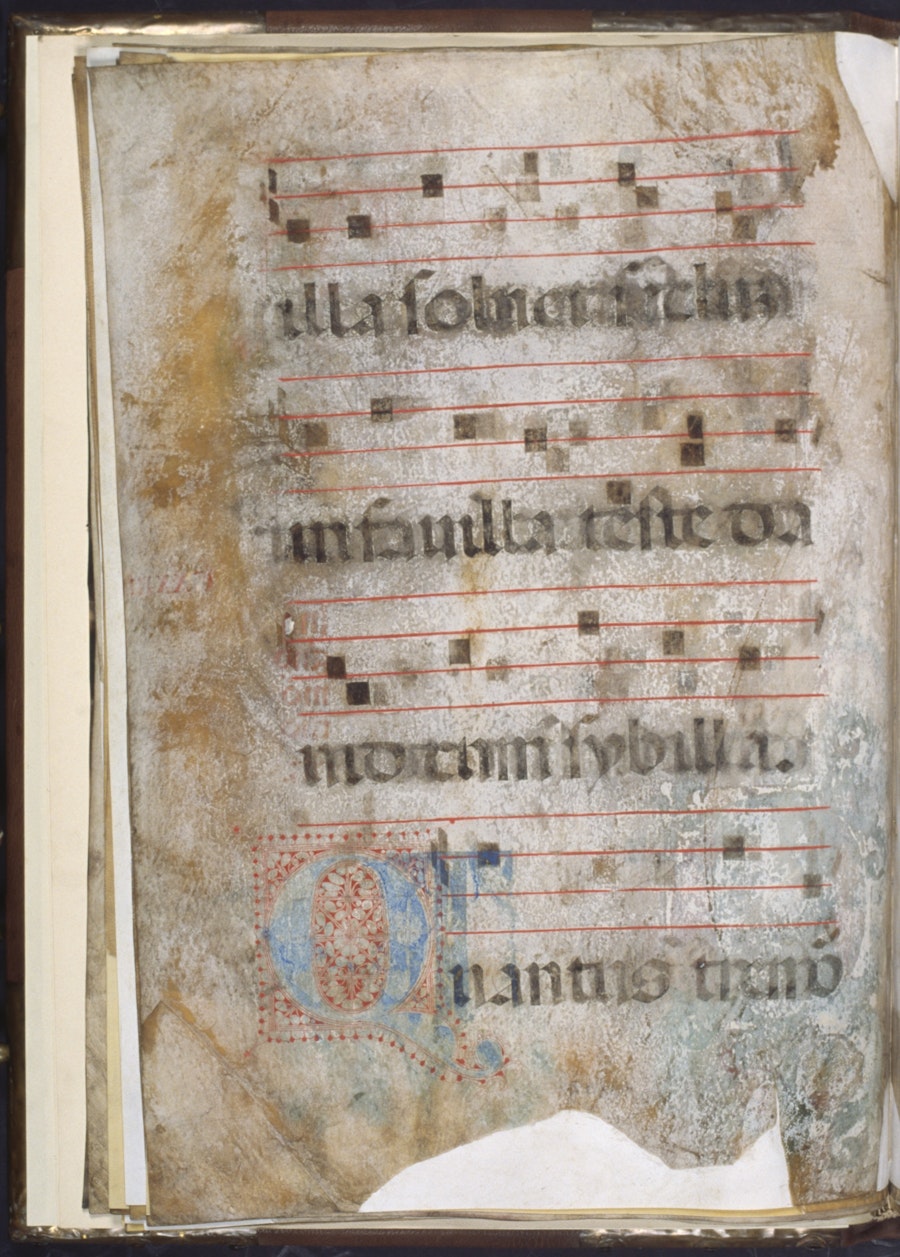 illa soluet seclum
in fauilla teste da
uid cum sybilla.
Quantus tremo